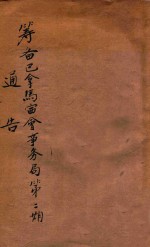 籌备巴拿馬賽會事務局第二期
通告